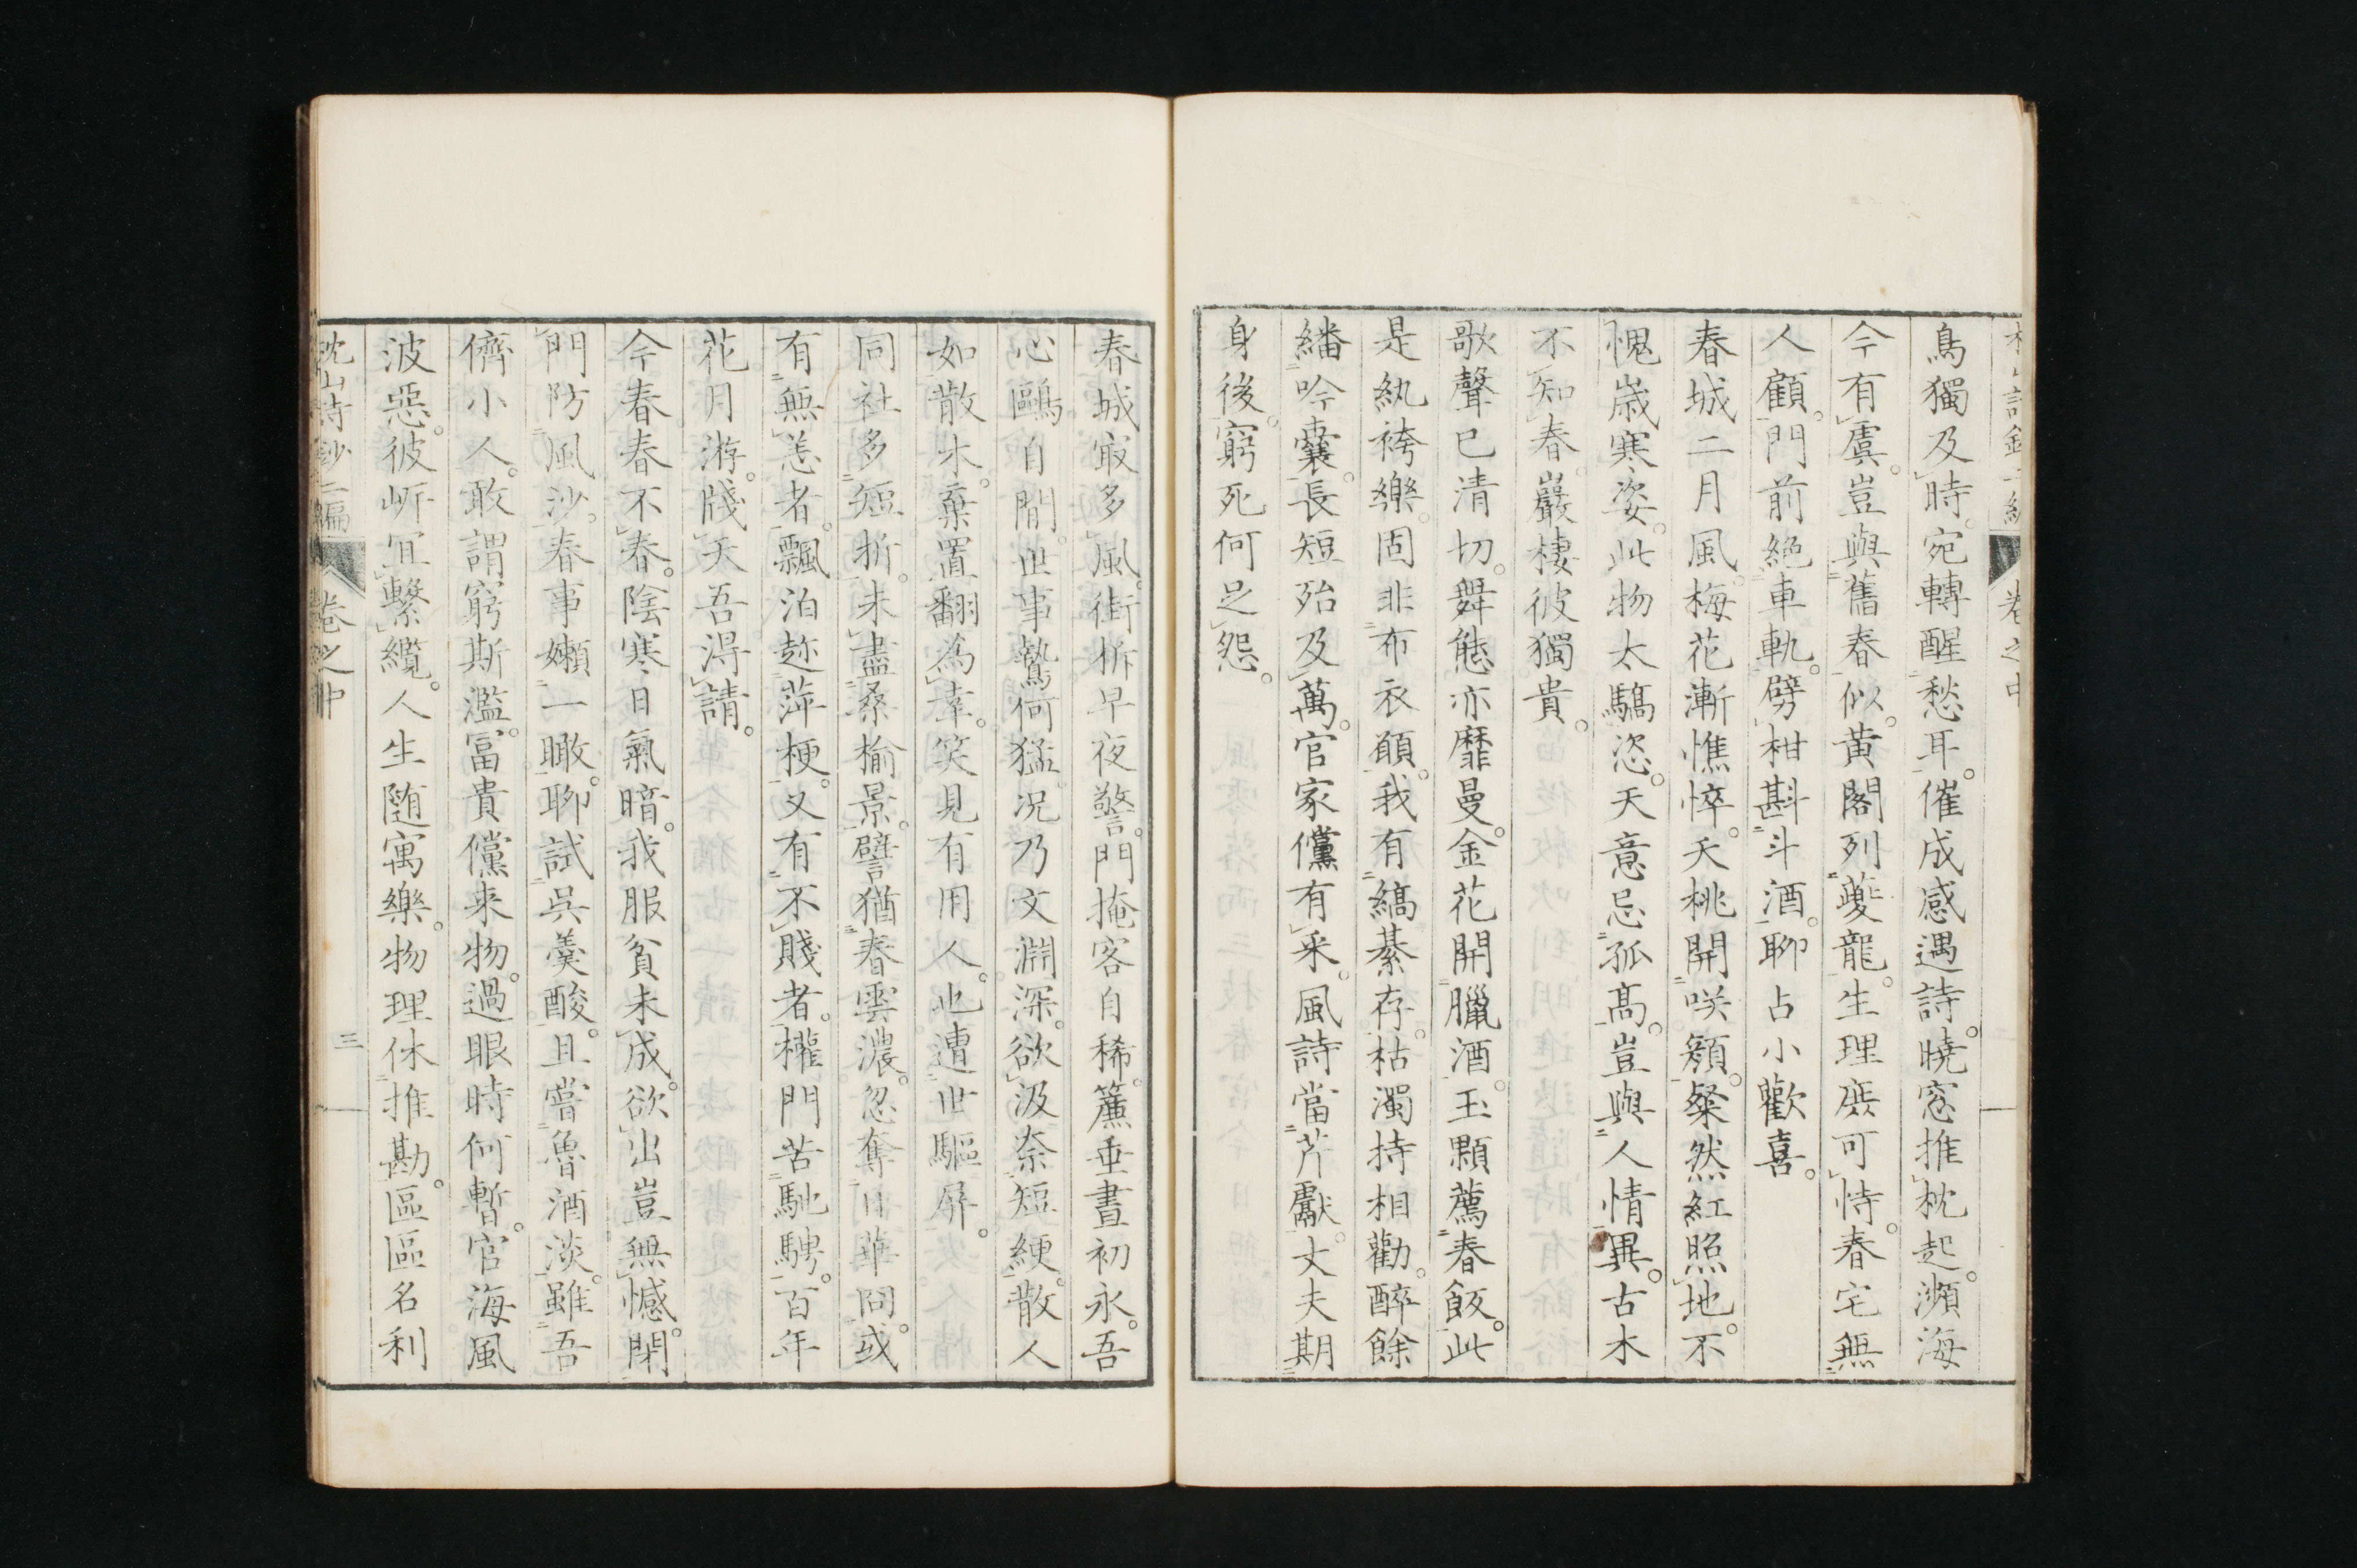 鳥獨及時。宛轉醒愁耳。催成感遇詩。曉窓推枕起。瀕海
今有虞。豈與舊春似。黄閣列夔龍。生理庶可恃。春宅無
人顧。門前絶車軌。劈柑斟斗酒。聊占小歡喜。
春城二月風。梅花漸憔悴。夭桃開咲顔。粲然紅照地。不
愧歳寒姿。此物太驕恣。天意忌孤高。豈與人情異。古木
不知春。巖棲彼獨貴。
歌聲已清切。舞態亦靡曼。金花開臘酒。玉顆薦春飯。此
是紈袴樂。固非布衣願。我有縞綦存。枯濁持相勸。醉餘
繙吟嚢。長短殆及萬。官家儻有采。風詩當芹獻。丈夫期
身後。窮死何足怨。
春城寂多風。街柝早夜警。門掩客自稀。簾垂晝初永。吾
心鷗自閒。世事鷙何猛。况乃文淵深。欲汲奈短綆。散人
如散木。棄置翻為幸。笑見有用人。也遭世驅屏。
同社多短折。未盡桑楡景。譬猶春雲濃。忽奪日華冏。或
有無恙者。飄泊跡萍梗。又有不賤者。權門苦馳騁。百年
花月游。牋天吾得請。
今春春不春。陰寒日氣暗。我服貧未成。欲出豈無憾。閉
門防風沙。春事嬾一瞰。聊試呉羹酸。且嘗魯酒淡。雖吾
儕小人。敢謂窮斯濫。富貴儻来物。過眼時何暫。官海風
波惡。彼岍宜繋纜。人生随寓樂。物理休推勘。區區名利
枕山詩鈔二編 卷之中 三